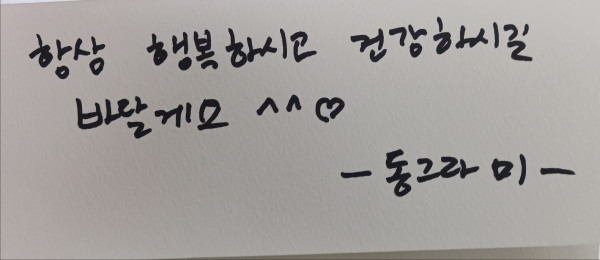 항상 행복하시고 건강하시길
바랄게요 ^^♡
-동그라미-